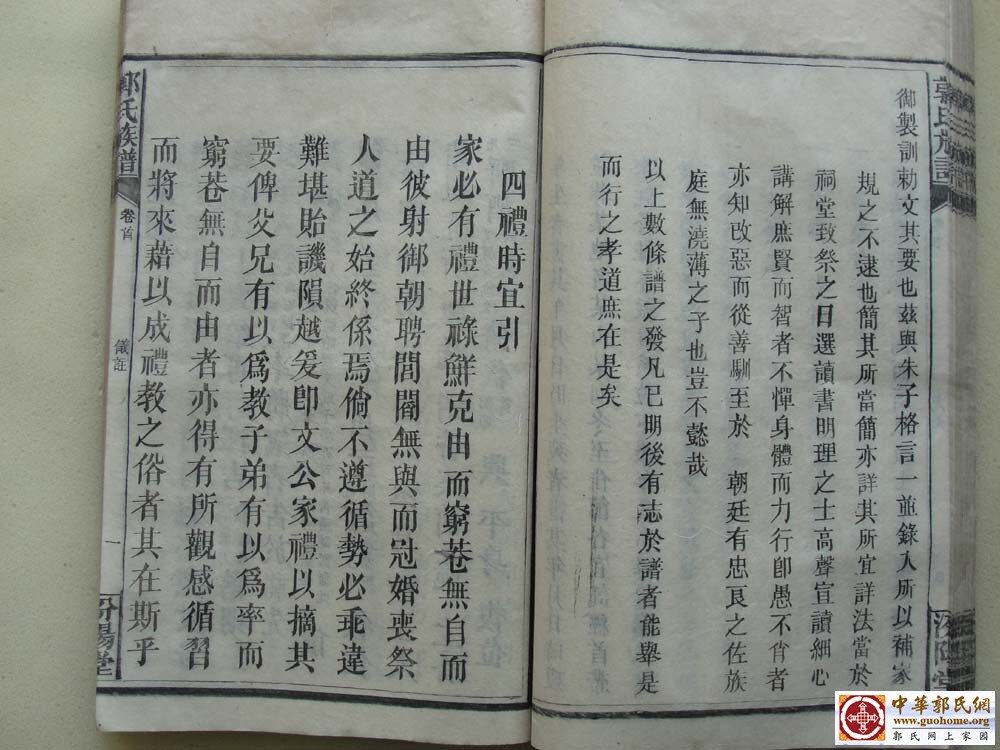 郭氏族譜
汾陽堂
御製訓勅文其要也茲與朱子格言一並錄入所以補家
規之不逮也簡其所當簡亦詳其所宜詳法當於
祠堂致祭之日選讀書明理之士高聲宣讀細心
講解庶賢而智者不憚身體而力行卽愚不肖者
亦知改惡而從善馴至於 朝廷有忠良之佐族
庭無澆薄之子也豈不懿哉
以上數條譜之發凡已明後有志於譜者能舉是
而行之孝道庶在是矣
四禮時宜引
家必有禮世祿鮮克由而窮巷無自而
由彼射御朝聘閭閻無與而冠婚喪祭
人道之始終係焉倘不遵循勢必乖違
難堪貽譏隕越爰卽文公家禮以摘其
要俾父兄有以爲教子弟有以爲率而
窮巷無自而由者亦得有所觀感循習
而將來藉以成禮教之俗者其在斯乎
郭氏族譜
卷首
儀註
一
汾陽堂
中華郭氏網
www.guohome.org
郭氏网上家園